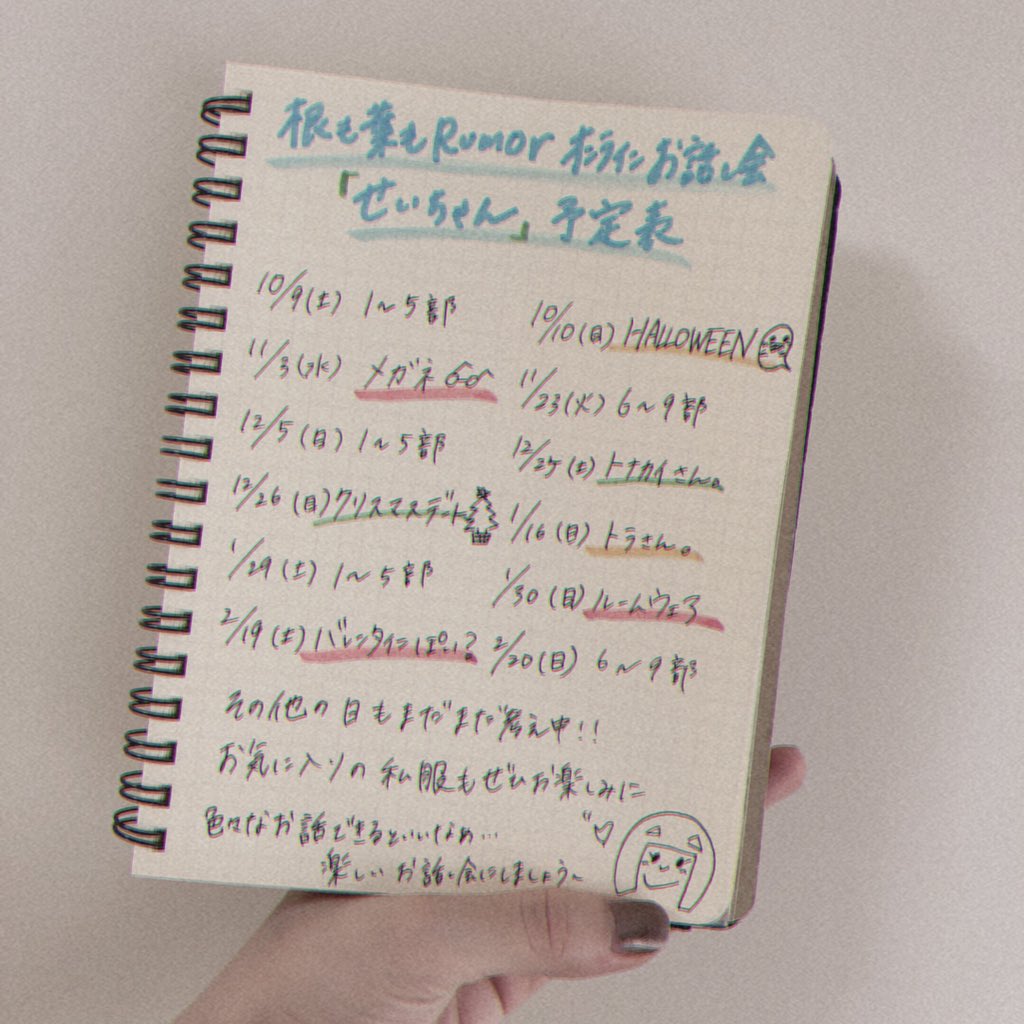 根も葉もRumor オンラインお話し会
「せいちゃん」予定表
10/9(土) 1〜5部
10/10(日) HALLOWEEN
11/3(水) メガネ
11/23(火) 6〜9部
12/5(日) 1〜5部
12/25(土) トナカイさん。
12/26(日) クリスマスデート
1/16(日) トラさん。
1/29(土) 1〜5部
1/30(日) ルームウェア
2/19(土) バレンタインぽい?
2/20(日) 6〜9部
その他の日もまだまだ考え中!!
お気に入りの私服もぜひお楽しみに
色々なお話できるといいなぁ…
楽しいお話し会にしましょう〜